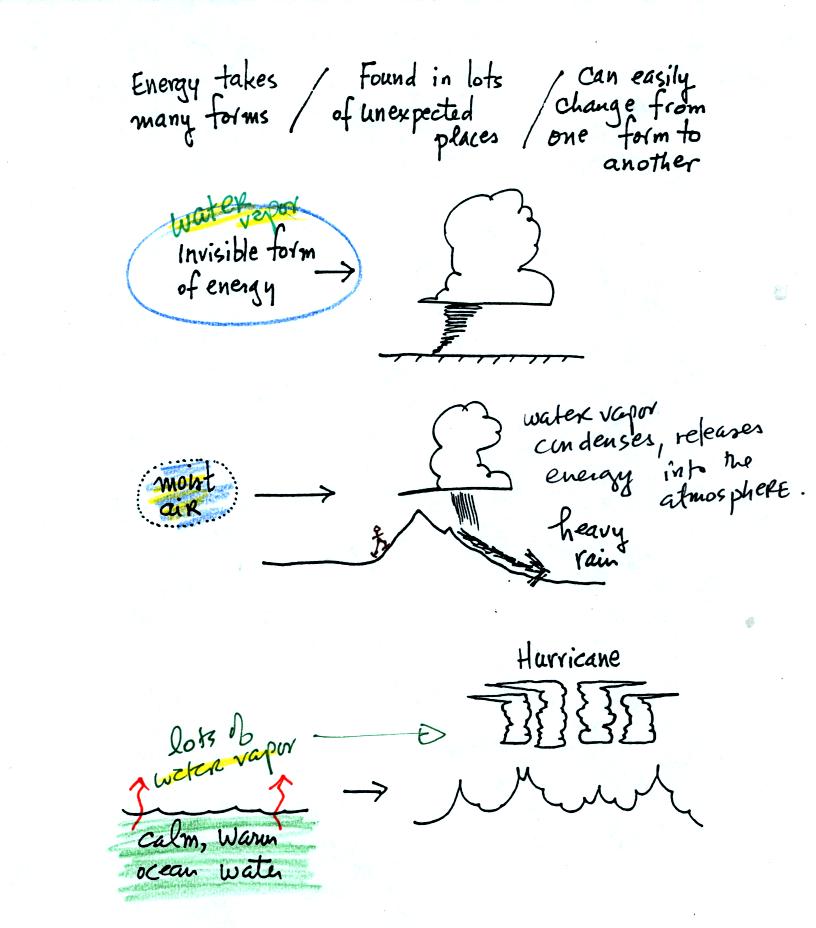 Energy takes
many forms
/
Found in lots
of unexpected
places
/
Can easily
change from
one form to
another
water
vapor
Invisible form
of energy
moist
air
water vapor
condenses, releases
energy into the
atmosphere.
heavy
rain
Hurricane
lots of
water vapor
calm, warm
ocean water